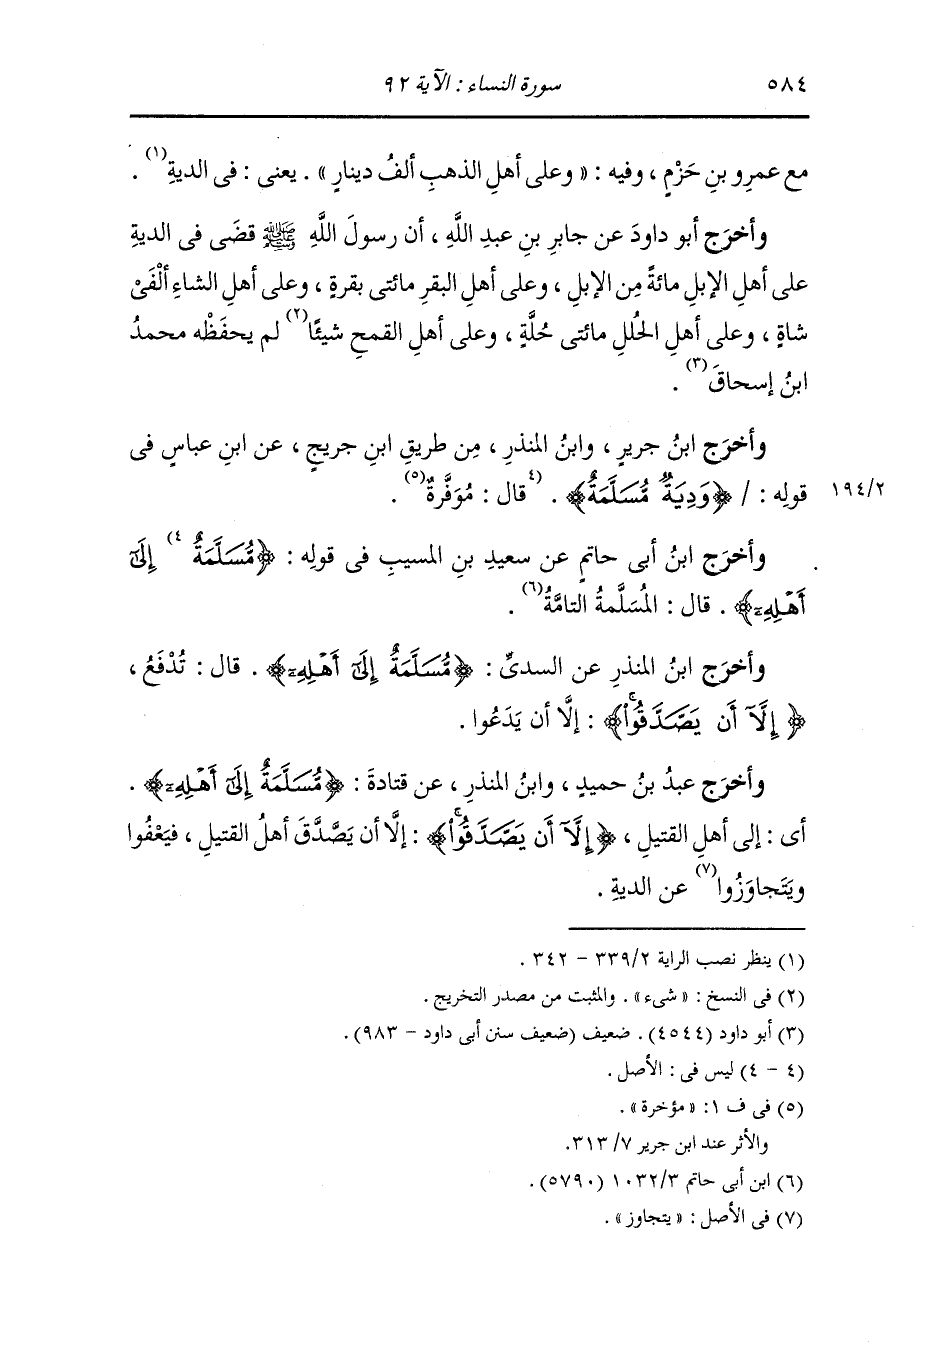 ٥٨٤ سورة النساء : الآية ٩٢
مع عمرِو بنِ حَزْمٍ ، وفيه : « وعلى أهلِ الذهبِ ألفُ دينارٍ » . يعنى : فى الديةِ(١) .
وأخرَج أبو داودَ عن جابرِ بنِ عبدِ اللَّهِ ، أن رسولَ اللَّهِ ﷺ قضَى فى الديةِ
على أهلِ الإبلِ مائةً مِن الإبلِ ، وعلى أهلِ البقرِ مائتى بقرةٍ ، وعلى أهلِ الشاءِ ألْفَىْ
شاةٍ ، وعلى أهلِ الحُللِ مائتى حُلَّةٍ ، وعلى أهلِ القمحِ شيئًا(٢) لم يحفَظْه محمدُ
ابنُ إسحاقَ(٣) .
وأخرَج ابنُ جريرٍ ، وابنُ المنذرِ ، مِن طريقِ ابنِ جريجٍ ، عن ابنِ عباسٍ فى
قولِه : / ﴿وَدِيَةٌ مُّسَلَّمَةٌ﴾ . (٤قال : مُوَفَّرةٌ(٥) . ١٩٤/٢
وأخرَج ابنُ أبى حاتمٍ عن سعيدِ بنِ المسيبِ فى قولِه : ﴿مُّسَلَّمَةٌ ٤) إِلَىٰٓ
أَهْلِهِۦ﴾ . قال : المُسَلَّمةُ التامَّةُ(٦) .
وأخرَج ابنُ المنذرِ عن السدىِّ : ﴿مُّسَلَّمَةٌ إِلَىٰٓ أَهْلِهِۦ﴾ . قال : تُدْفَعُ ،
﴿إِلَّآ أَن يَصَّدَّقُوا۟ۚ﴾ : إلَّا أن يَدَعُوا .
وأخرَج عبدُ بنُ حميدٍ ، وابنُ المنذرِ ، عن قتادةَ : ﴿مُّسَلَّمَةٌ إِلَىٰٓ أَهْلِهِۦ﴾ .
أى : إلى أهلِ القتيلِ ، ﴿إِلَّآ أَن يَصَّدَّقُوا۟ۚ﴾ : إلَّا أن يَصَّدَّقَ أهلُ القتيلِ ، فيَعْفُوا
ويَتَجاوَزُوا(٧) عن الديةِ .
(١) ينظر نصب الراية ٣٣٩/٢ – ٣٤٢ .
(٢) فى النسخ : « شىء» . والمثبت من مصدر التخريج .
(٣) أبو داود (٤٥٤٤) . ضعيف (ضعيف سنن أبى داود – ٩٨٣) .
(٤ – ٤) ليس فى : الأصل .
(٥) فى ف ١: « مؤخرة» .
والأثر عند ابن جرير ٧/ ٣١٣.
(٦) ابن أبى حاتم ١٠٣٢/٣ (٥٧٩٠) .
(٧) فى الأصل : « يتجاوز» .